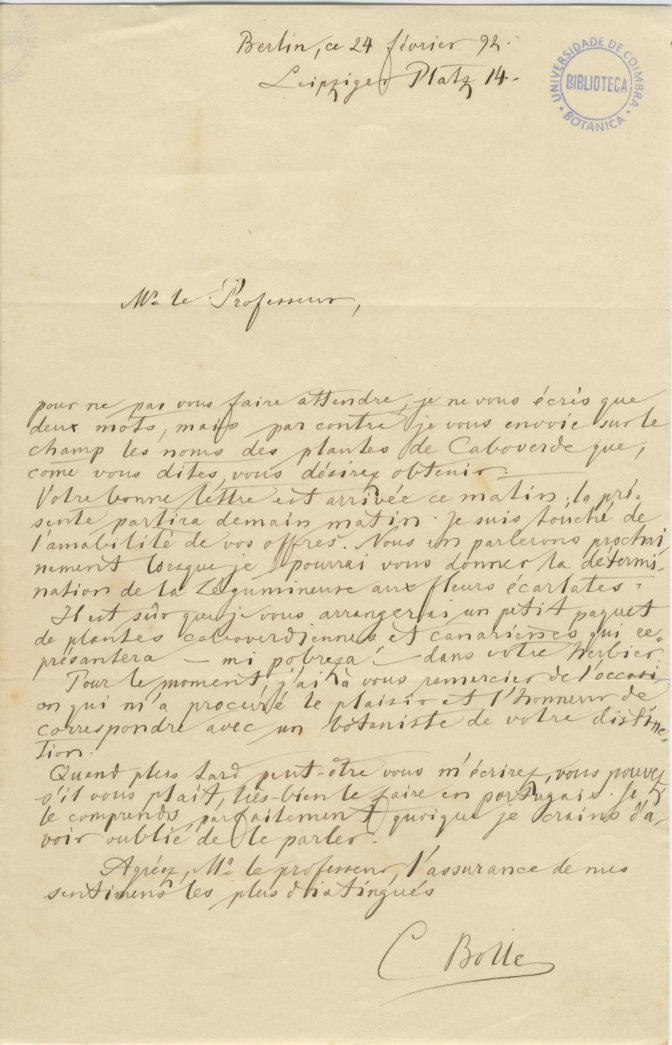 Berlin, ce 24 février 92.
Leipziger Platz 14.
UNIVERSIDADE DE COIMBRA
BIBLIOTECA
BOTANICA
Mr. le Professeur,
pour ne pas vous faire attendre, je ne vous écris que
deux mots, mais par contre je vous envoie sur le
champ les noms des plantes de Caboverde que,
come vous dites, vous désirez obtenir.
Votre bonne lettre est arrivée ce matin; la pré-
sente partira demain matin. Je suis touché de
l'amabilité de vos offres. Nous en parlerons prochai-
nement lorsque je pourrai vous donner la détermi-
nation de la Légumineuse aux fleurs écarlates.
Il est sûr que je vous arrangerai un petit paquet
de plantes caboverdiennes et canariénses qui re-
présantera – mi pobreza! – dans votre herbier.
Pour le moment, j'ai à vous remercier de l'occasi-
on qui m'a procuré le plaisir et l'honneur de
correspondre avec un botaniste de votre distinc-
tion.
Quand plus tard peut-être vous m'écrirez, vous pouvez
s'il vous plait, très-bien le faire en portugais. Je
le comprends parfaitement quoique je crains d'a-
voir oublié de le parler.
Agréez, Mr. le professeur, l'assurance de mes
sentimens les plus distingués
C Bolle